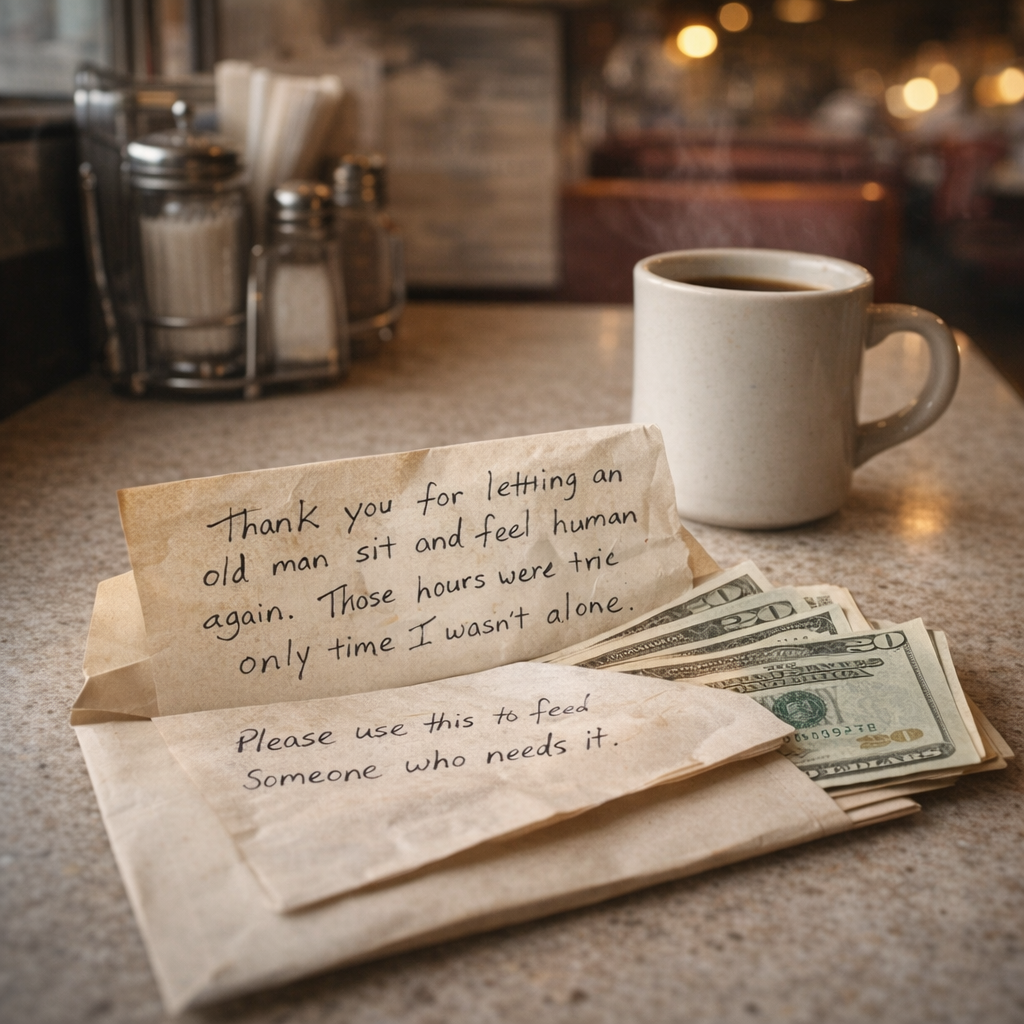 Thank you for letting an
old man sit and feel human
again. Those hours were tric
only time I wasn't alone.
Please use this to feed
Someone who needs it.
20
20
20